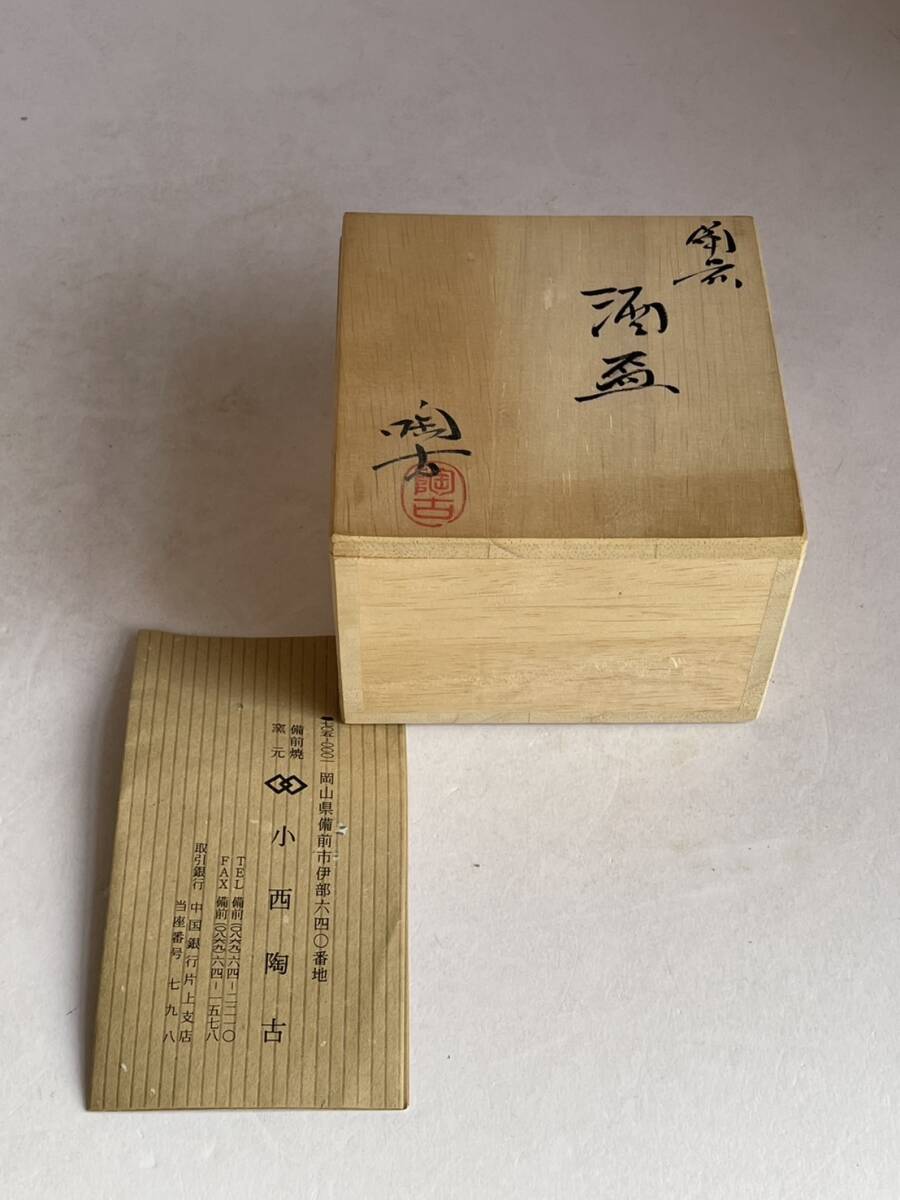 備前
酒盃
陶古
陶古
〒七〇五-〇〇〇一 岡山県備前市伊部六四〇番地
備前焼
窯元
小西陶古
TEL 備前(〇八六九)六四-二二一〇
FAX 備前(〇八六九)六四-一五七八
取引銀行 中国銀行片上支店
当座番号 七九八